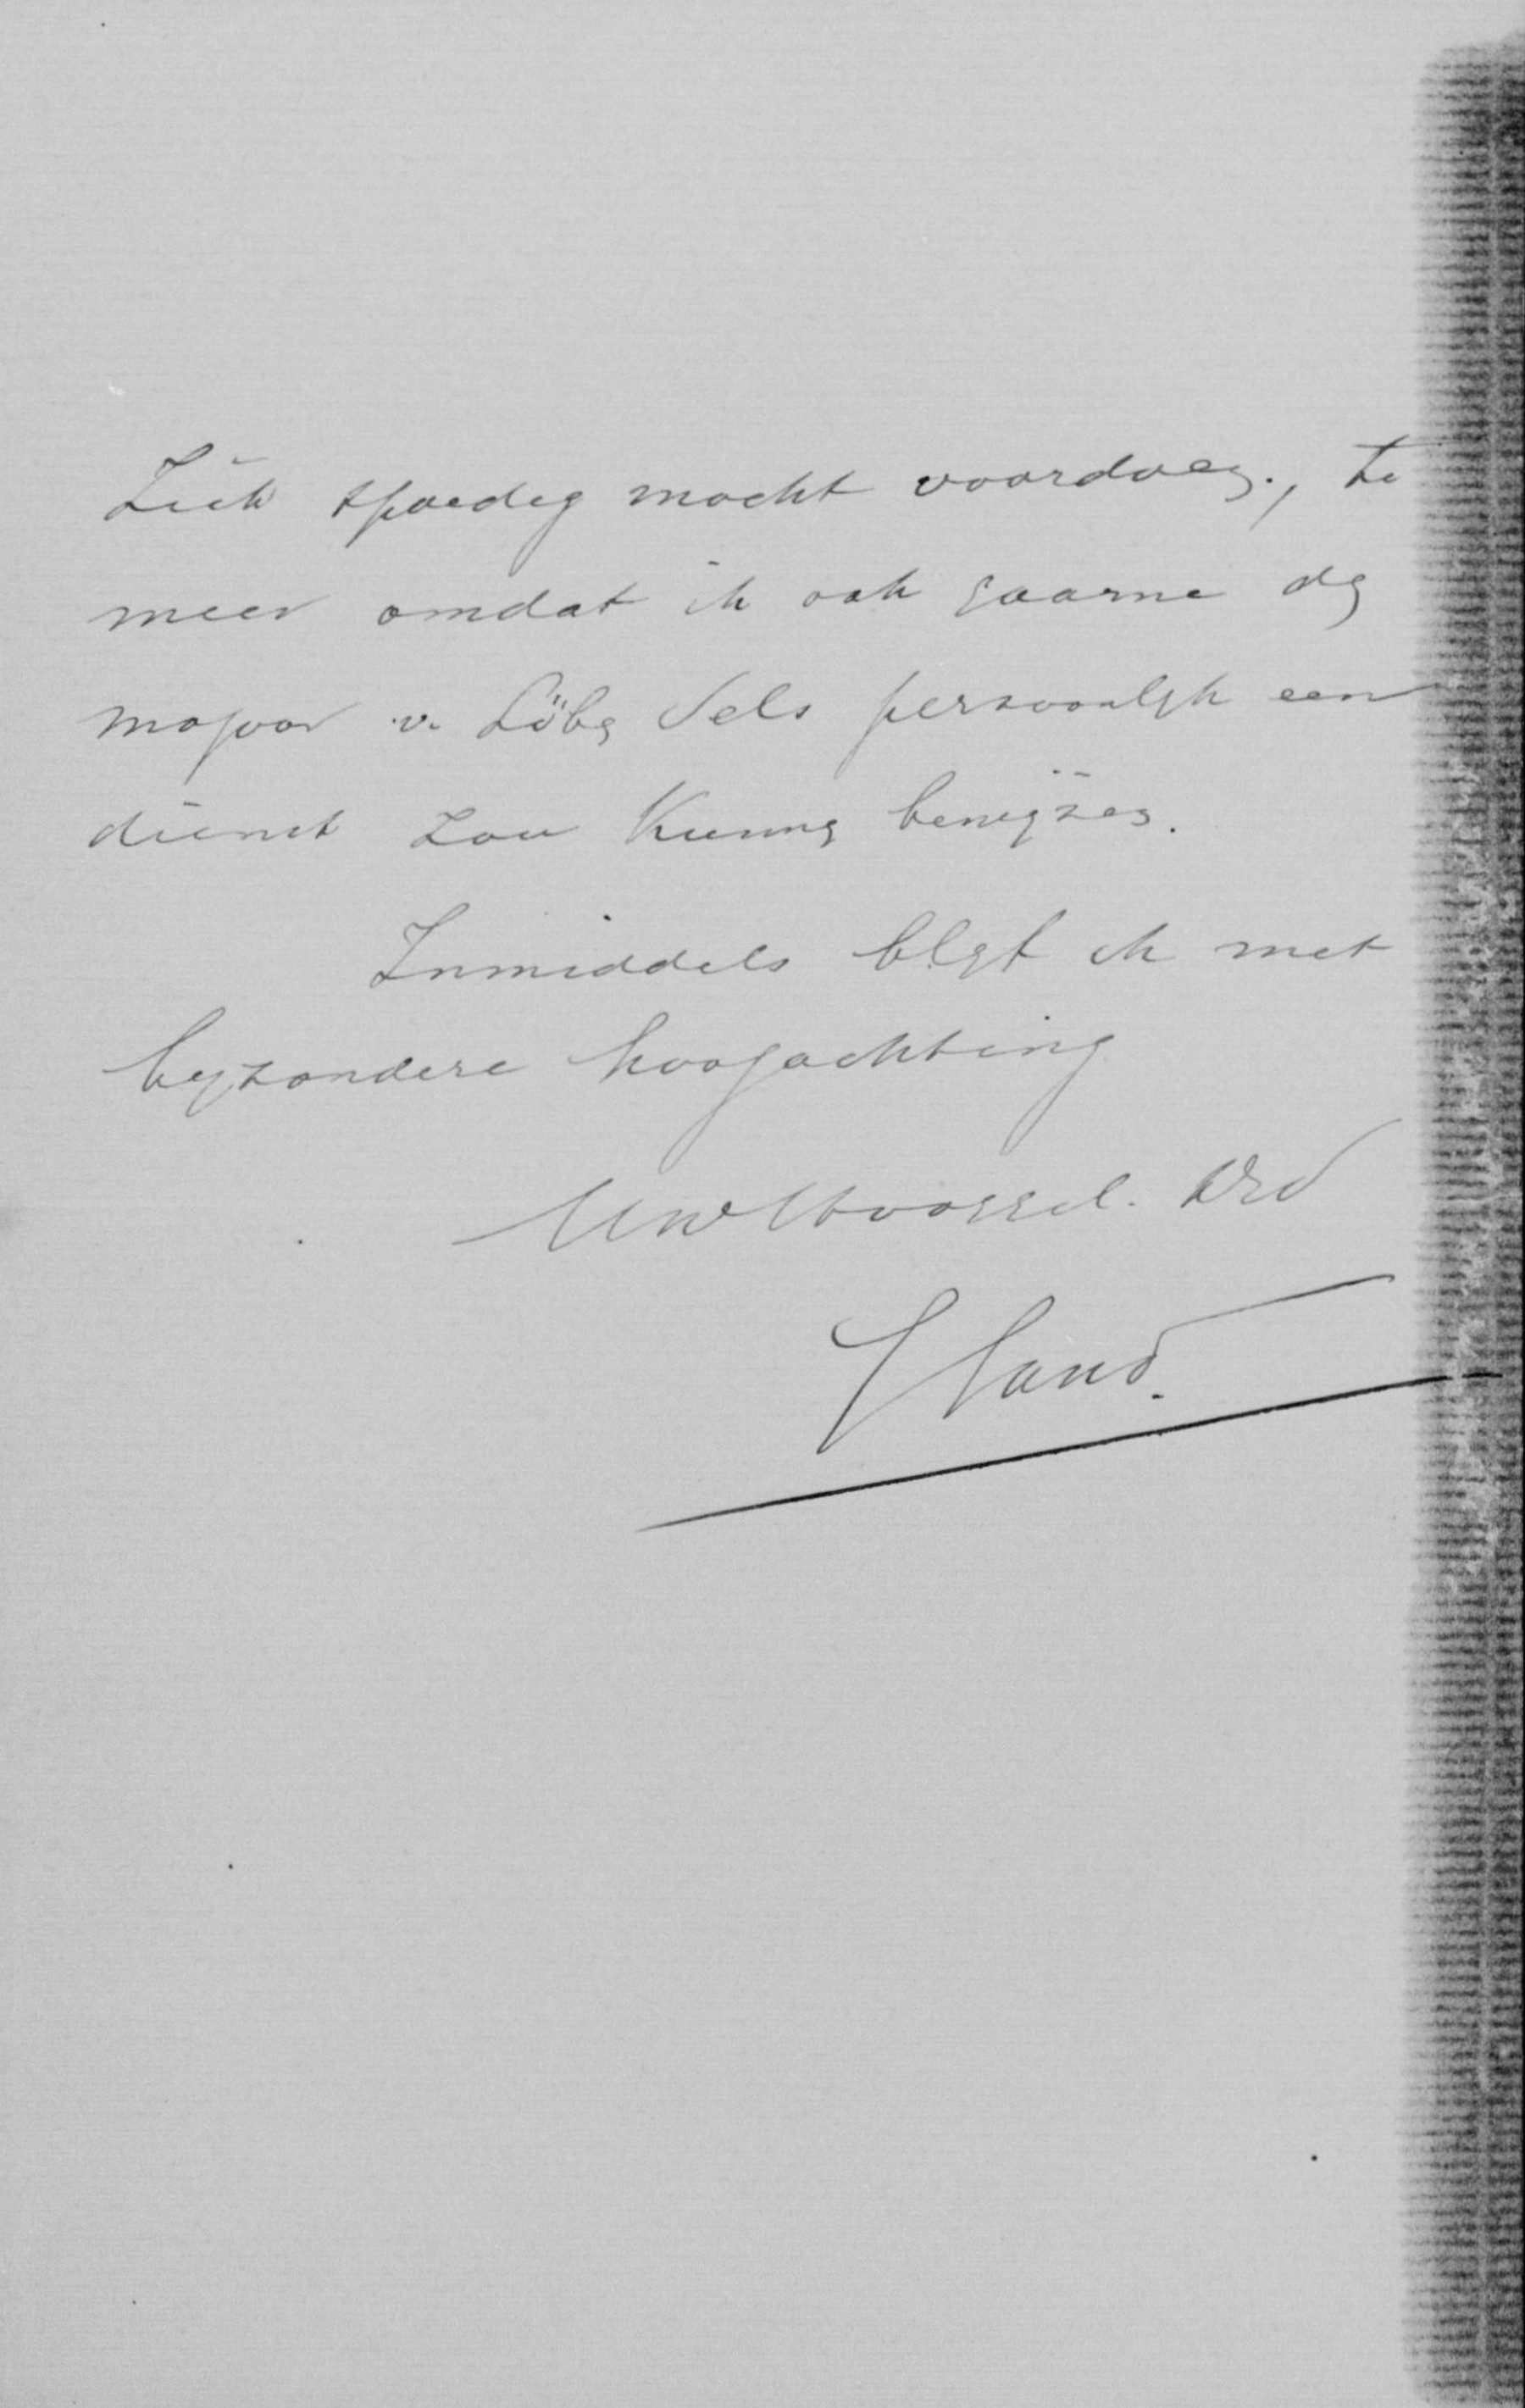 zich spoedig mocht voordoen., te
meer omdat ik ook gaarne den
majoor v. Löben Sels persoonlijk een
dienst zou kunnen bewijzen.
Inmiddels blijf ik met
bijzondere hoogachting
UwHoogged. Drd
Eland.